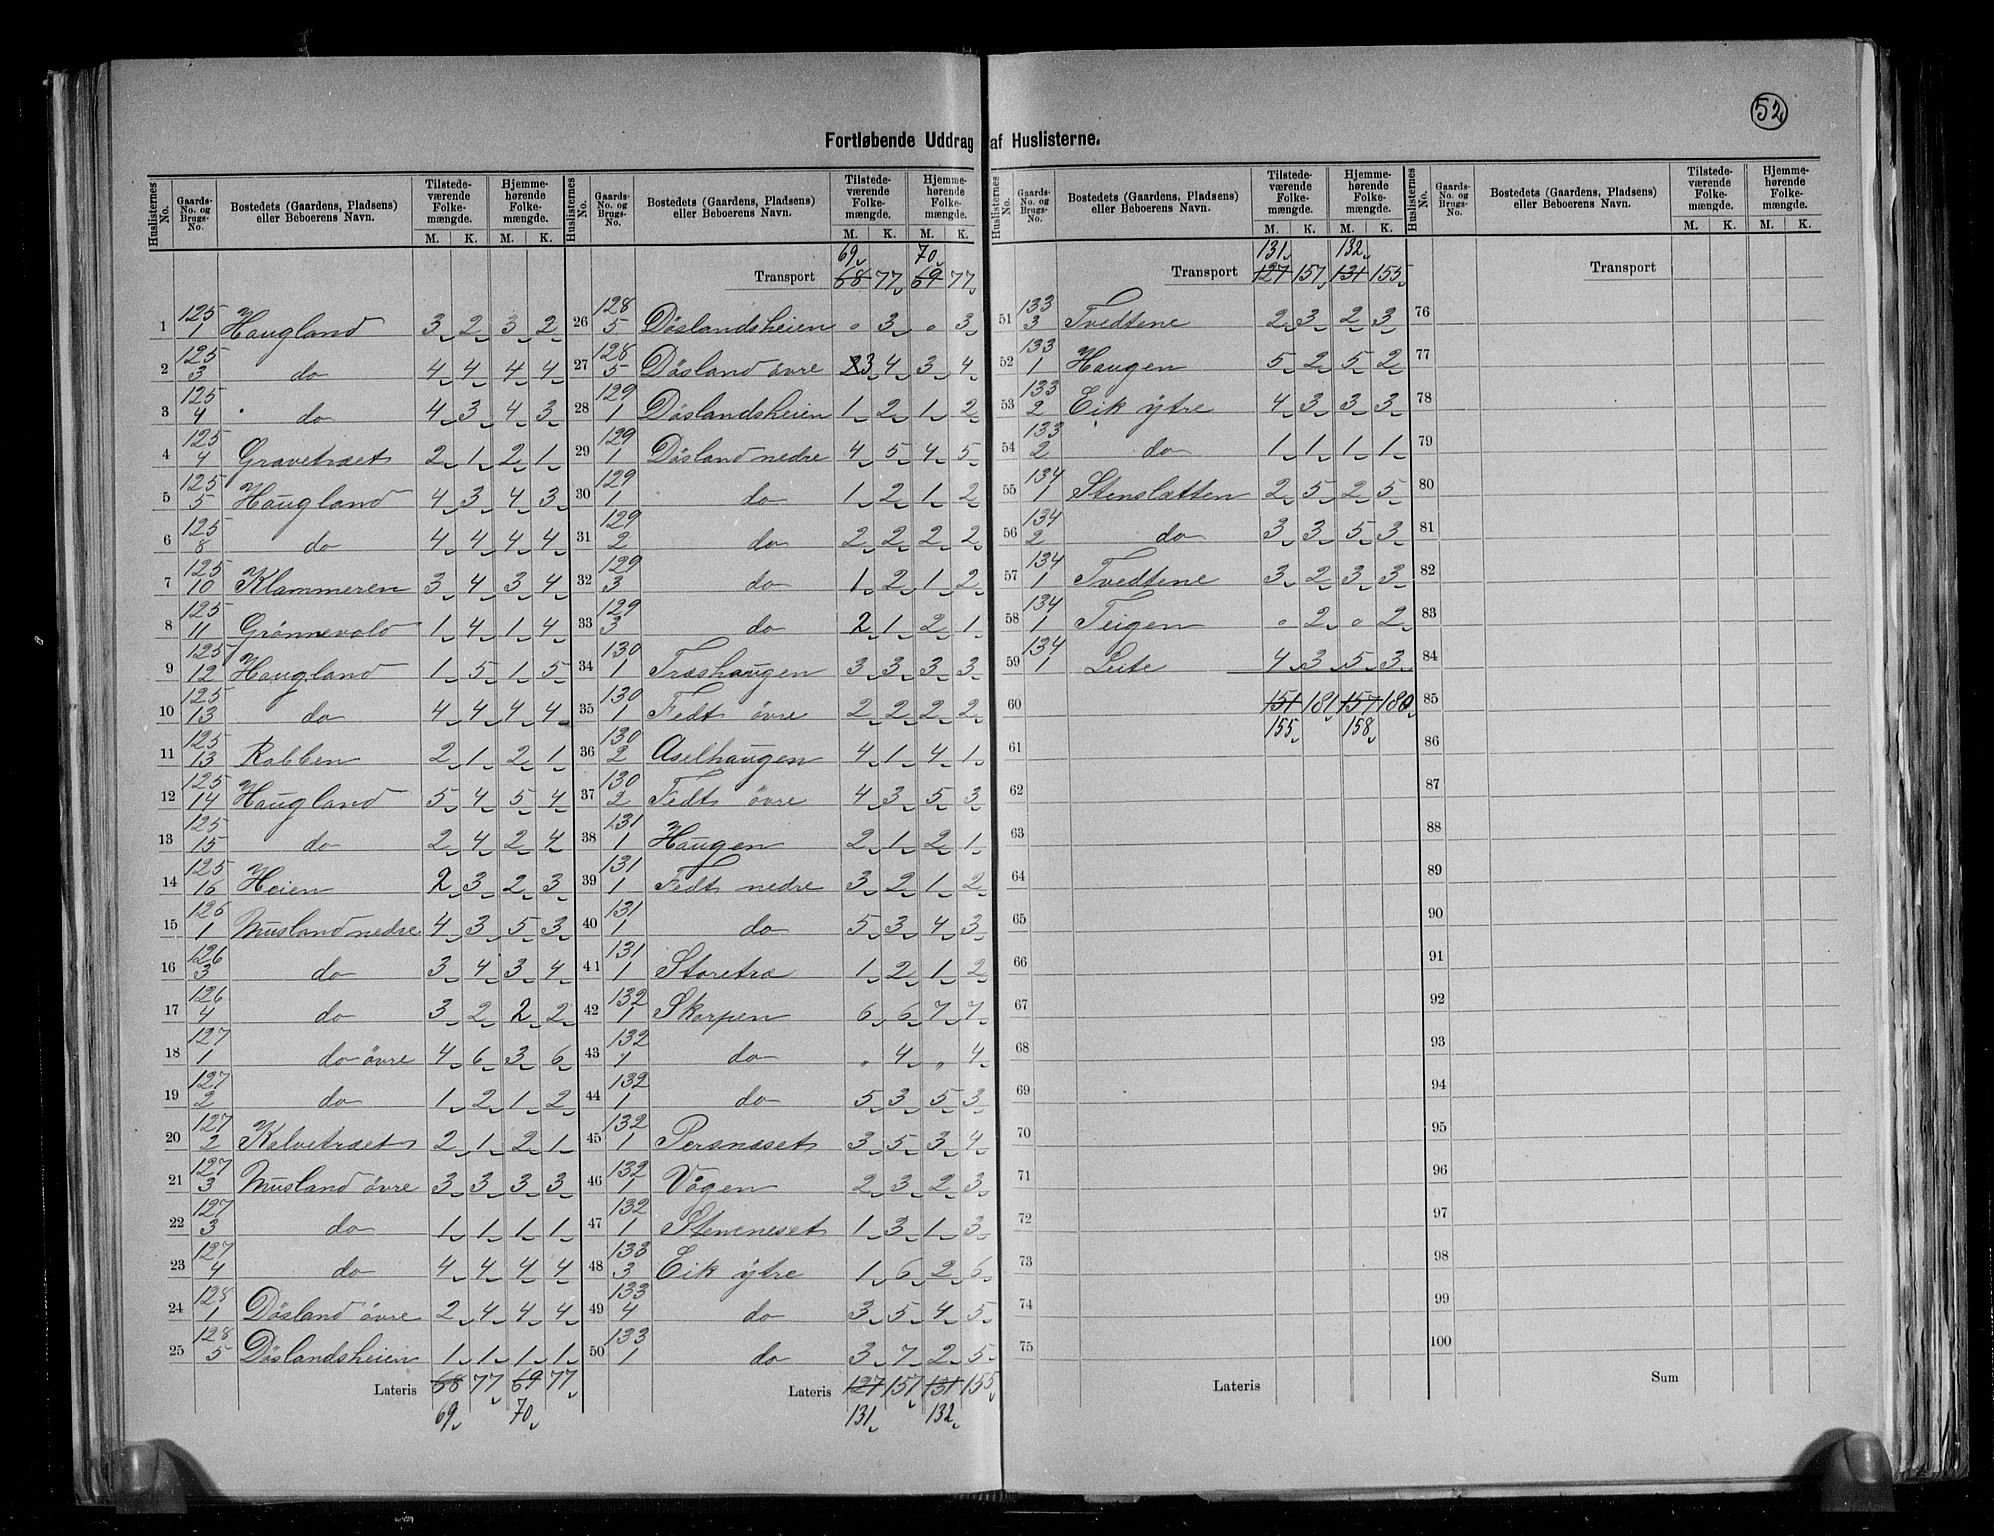 52
Fortløbende Uddrag af Huslisterne.
Huslisternes No. Gaards-No. og Brugs-No. Bostedets (Gaardens, Pladsens) eller Beboerens Navn. Tilstede-værende Folke-mængde. M. K. Hjemme-hørende Folke-mængde. M. K.
1 125/1 Haugland 3 2 3 2
2 125/3 do 4 4 4 4
3 125/4 do 4 3 4 3
4 125/4 Gravetræet 2 1 2 1
5 125/5 Haugland 4 3 4 3
6 125/8 do 4 4 4 4
7 125/10 Klammeren 3 4 3 4
8 125/11 Grønnevold 1 4 1 4
9 125/12 Haugland 1 5 1 5
10 125/13 do 4 4 4 4
11 125/13 Rabben 2 1 2 1
12 125/14 Haugland 5 4 5 4
13 125/15 do 2 4 2 4
14 125/16 Heien 2 3 2 3
15 126/1 Musland nedre 4 3 5 3
16 126/3 do 3 4 3 4
17 126/4 do 3 2 2 2
18 127/1 do øvre 4 6 3 6
19 127/2 do 1 2 1 2
20 127/2 Kalvetræet 2 1 2 1
21 127/3 Musland øvre 3 3 3 3
22 127/3 do 1 1 1 1
23 127/4 do 4 4 4 4
24 128/1 Døsland øvre 2 4 4 4
25 128/5 Døslandsheien 1 1 1 1
Lateris 68 77 69 77
69 70
Huslisternes No. Gaards-No. og Brugs-No. Bostedets (Gaardens, Pladsens) eller Beboerens Navn. Tilstede-værende Folke-mængde. M. K. Hjemme-hørende Folke-mængde. M. K.
69 70
Transport 68 77 69 77
26 128/5 Døslandsheien " 3 " 3
27 128/5 Døsland øvre 3 4 3 4
28 129/1 Døslandsheien 1 2 1 2
29 129/1 Døsland nedre 4 5 4 5
30 129/1 do 1 2 1 2
31 129/2 do 2 2 2 2
32 129/3 do 1 2 1 2
33 129/3 do 2 1 2 1
34 130/1 Træshaugen 3 3 3 3
35 130/1 Fedt øvre 2 2 2 2
36 130/2 Aselhaugen 4 1 4 1
37 130/2 Fedt øvre 4 3 5 3
38 131/1 Haugen 2 1 2 1
39 131/1 Fedt nedre 3 2 1 2
40 131/1 do 5 3 4 3
41 131/1 Storetræ 1 2 1 2
42 132/1 Skorpen 6 6 7 7
43 132/1 do " 4 " 4
44 132/1 do 5 3 5 3
45 132/1 Persnæset 3 5 3 4
46 132/1 Vågen 2 3 2 3
47 132/1 Steneneset 1 3 1 3
48 133/3 Eik ytre 1 6 2 6
49 133/4 do 3 5 4 5
50 133/1 do 3 7 2 5
Lateris 127 157 131 155
131 132
Huslisternes No. Gaards-No. og Brugs-No. Bostedets (Gaardens, Pladsens) eller Beboerens Navn. Tilstede-værende Folke-mængde. M. K. Hjemme-hørende Folke-mængde. M. K.
131 132
Transport 127 157 131 155
51 133/3 Tvedtene 2 3 2 3
52 133/1 Haugen 5 2 5 2
53 133/2 Eik ytre 4 3 3 3
54 133/2 do 1 1 1 1
55 134/1 Stenslætten 2 5 2 5
56 134/2 do 3 3 5 3
57 134/1 Tvedtene 3 2 3 3
58 134/1 Teigen " 2 " 2
59 134/1 Leite 4 3 5 3
60 151 181 157 180
155 158
61
62
63
64
65
66
67
68
69
70
71
72
73
74
75
Lateris
Huslisternes No. Gaards-No. og Brugs-No. Bostedets (Gaardens, Pladsens) eller Beboerens Navn. Tilstede-værende Folke-mængde. M. K. Hjemme-hørende Folke-mængde. M. K.
Transport
76
77
78
79
80
81
82
83
84
85
86
87
88
89
90
91
92
93
94
95
96
97
98
99
100
Sum